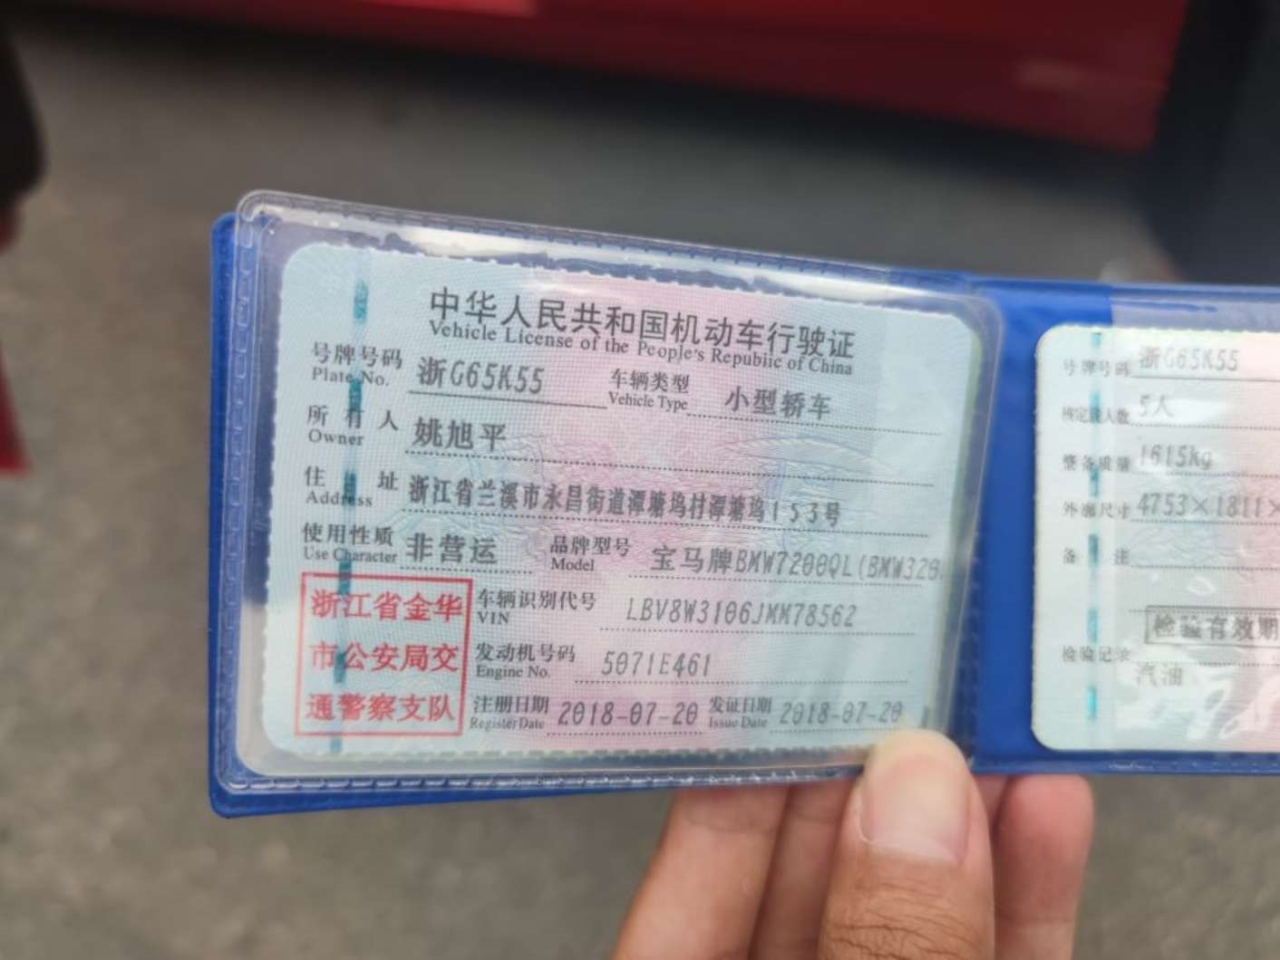 中华人民共和国机动车行驶证
Vehicle License of the People's Republic of China
号牌号码 浙G65K55 车辆类型 小型轿车
Plate No. Vehicle Type
所有人 姚旭平
Owner
住址 浙江省兰溪市永昌街道潭塘坞村潭塘坞153号
Address
使用性质 非营运 品牌型号 宝马牌BMW7200QL(BMW320
Use Character Model
浙江省金华
市公安局交
通警察支队
车辆识别代号 LBV8W3106JMM78562
VIN
发动机号码 5071E461
Engine No.
注册日期 2018-07-20 发证日期 2018-07-20
Register Date Issue Date
号牌号码 浙G65K55
核定载人数 5人
整备质量 1615kg
外廓尺寸 4753×1811×
备注
检验有效期
检验记录
汽油